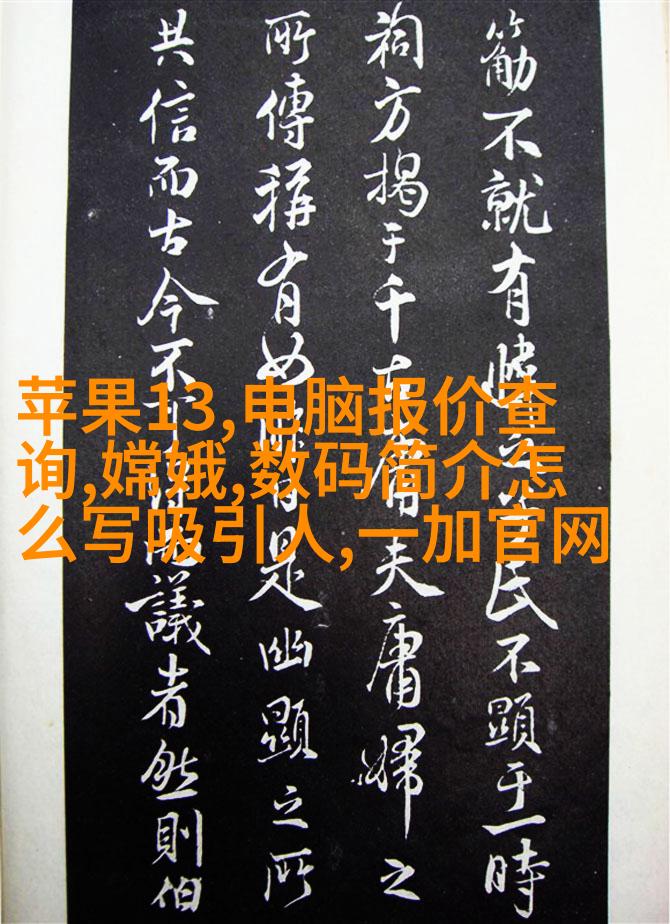 不就有之民不顯于一時
祠方揭于千夫庸婦之
所傳稱有如是幽顯之所
共信而古今不可議者然則伯
苹果13,电脑报价查
询,嫦娥,数码简介怎
么写吸引人,一加官网